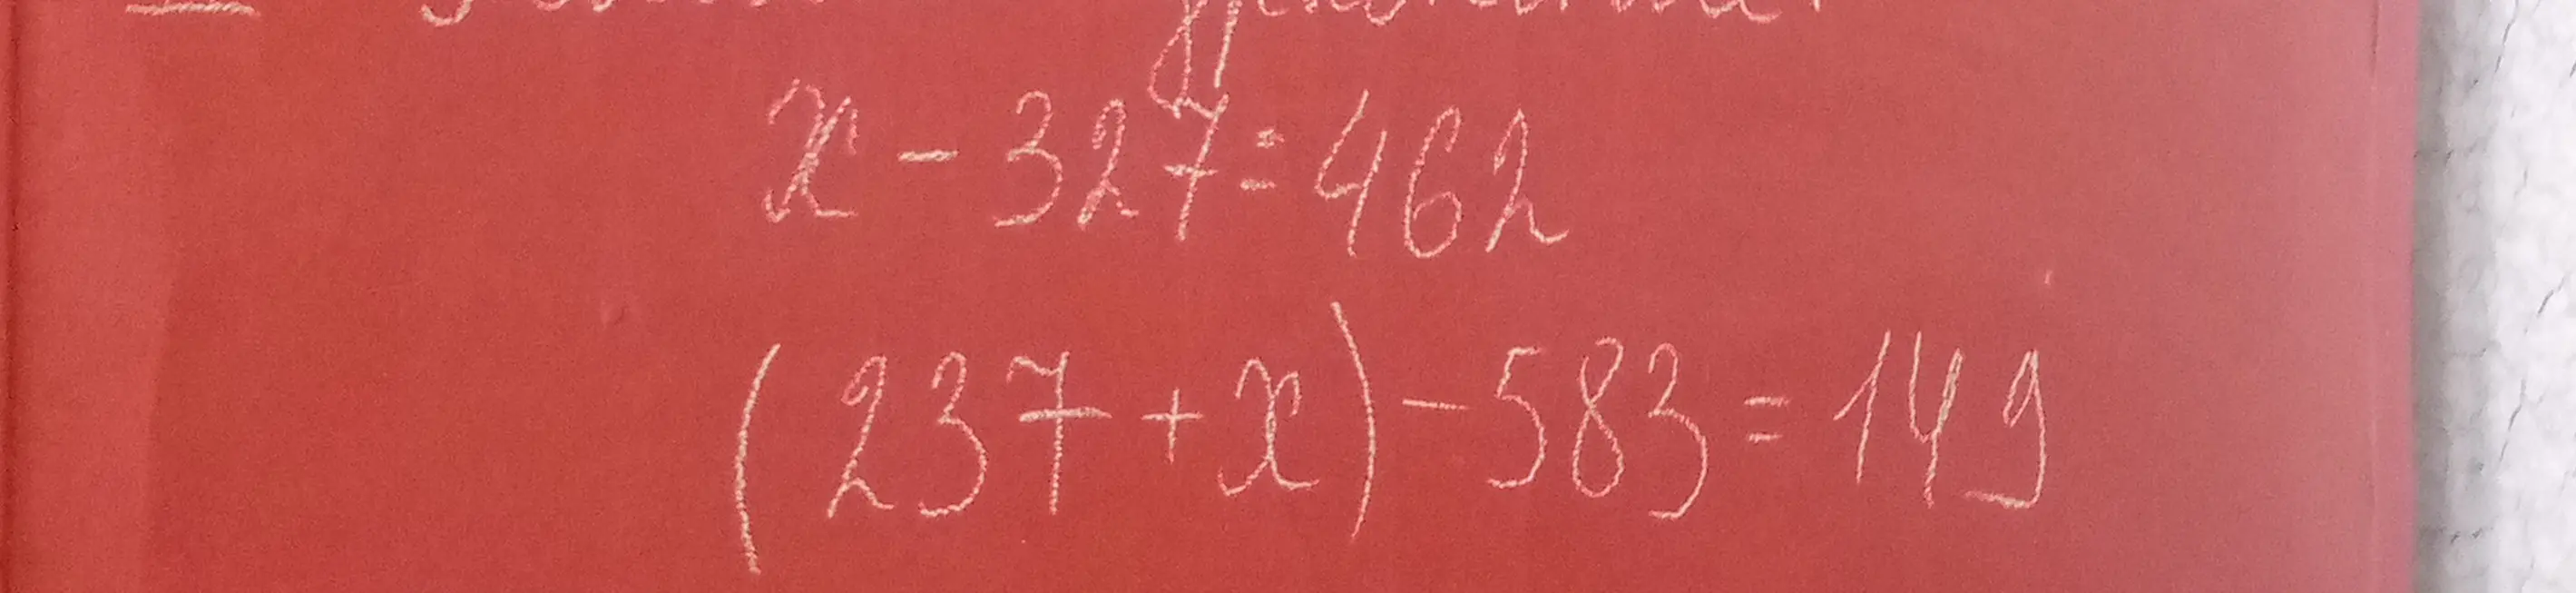 x - 327 = 462
(237 + x) - 583 = 149